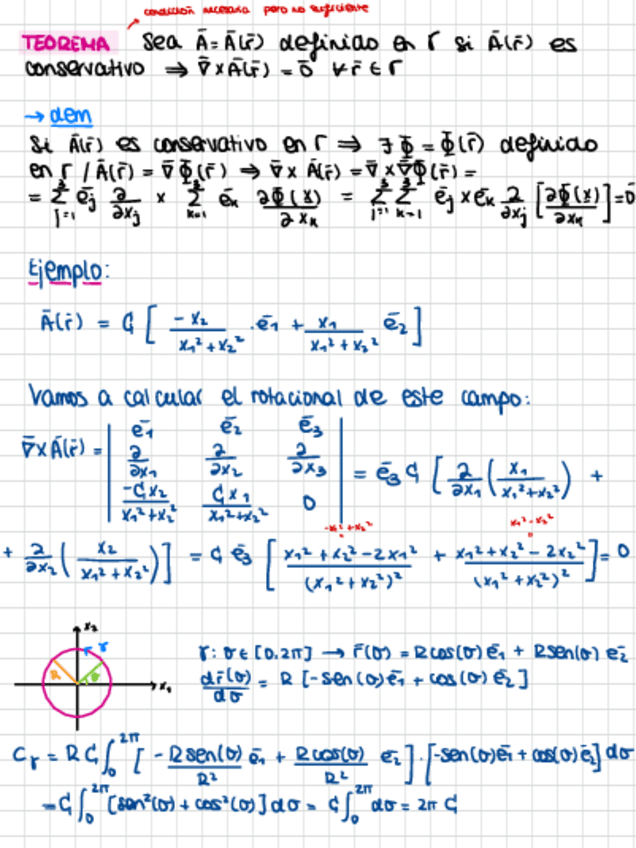 condición necesaria pero no suficiente
TEOREMA Sea Ā = Ā(r̄) definido en Γ si Ā(r̄) es
conservativo ⇒ ∇̄ × Ā(r̄) = 0̄ ∀ r̄ ∈ Γ
→ dem
Si Ā(r̄) es conservativo en Γ ⇒ ∃ Φ = Φ(r̄) definido
en Γ / Ā(r̄) = ∇̄Φ(r̄) ⇒ ∇̄ × Ā(r̄) = ∇̄ × ∇̄Φ(r̄) =
= Σ_{j=1}^{3} ē_j ∂/∂x_j × Σ_{k=1}^{3} ē_k ∂Φ(x)/∂x_k = Σ_{j=1}^{3} Σ_{k=1}^{3} ē_j × ē_k ∂/∂x_j [∂Φ(x)/∂x_k] = 0̄
Ejemplo:
Ā(r̄) = C [ -x₂/(x₁²+x₂²) · ē₁ + x₁/(x₁²+x₂²) ē₂ ]
Vamos a calcular el rotacional de este campo:
∇̄ × Ā(r̄) = | ē₁ ē₂ ē₃ |
| ∂/∂x₁ ∂/∂x₂ ∂/∂x₃ | = ē₃ C [ ∂/∂x₁ ( x₁/(x₁²+x₂²) ) +
| -Cx₂/(x₁²+x₂²) Cx₁/(x₁²+x₂²) 0 |
-x₁²+x₂² x₁²-x₂²
+ ∂/∂x₂ ( x₂/(x₁²+x₂²) ) ] = C ē₃ [ (x₁²+x₂²-2x₁²)/(x₁²+x₂²)² + (x₁²+x₂²-2x₂²)/(x₁²+x₂²)² ] = 0
x₂
γ
R θ
x₁
γ: θ ∈ [0, 2π] → r̄(θ) = R cos(θ) ē₁ + R sen(θ) ē₂
dr̄(θ)/dθ = R [-sen(θ) ē₁ + cos(θ) ē₂]
C_γ = R C ∫₀^{2π} [ - R sen(θ)/R² ē₁ + R cos(θ)/R² ē₂ ] · [-sen(θ) ē₁ + cos(θ) ē₂] dθ
= C ∫₀^{2π} [sen²(θ) + cos²(θ)] dθ = C ∫₀^{2π} dθ = 2π C